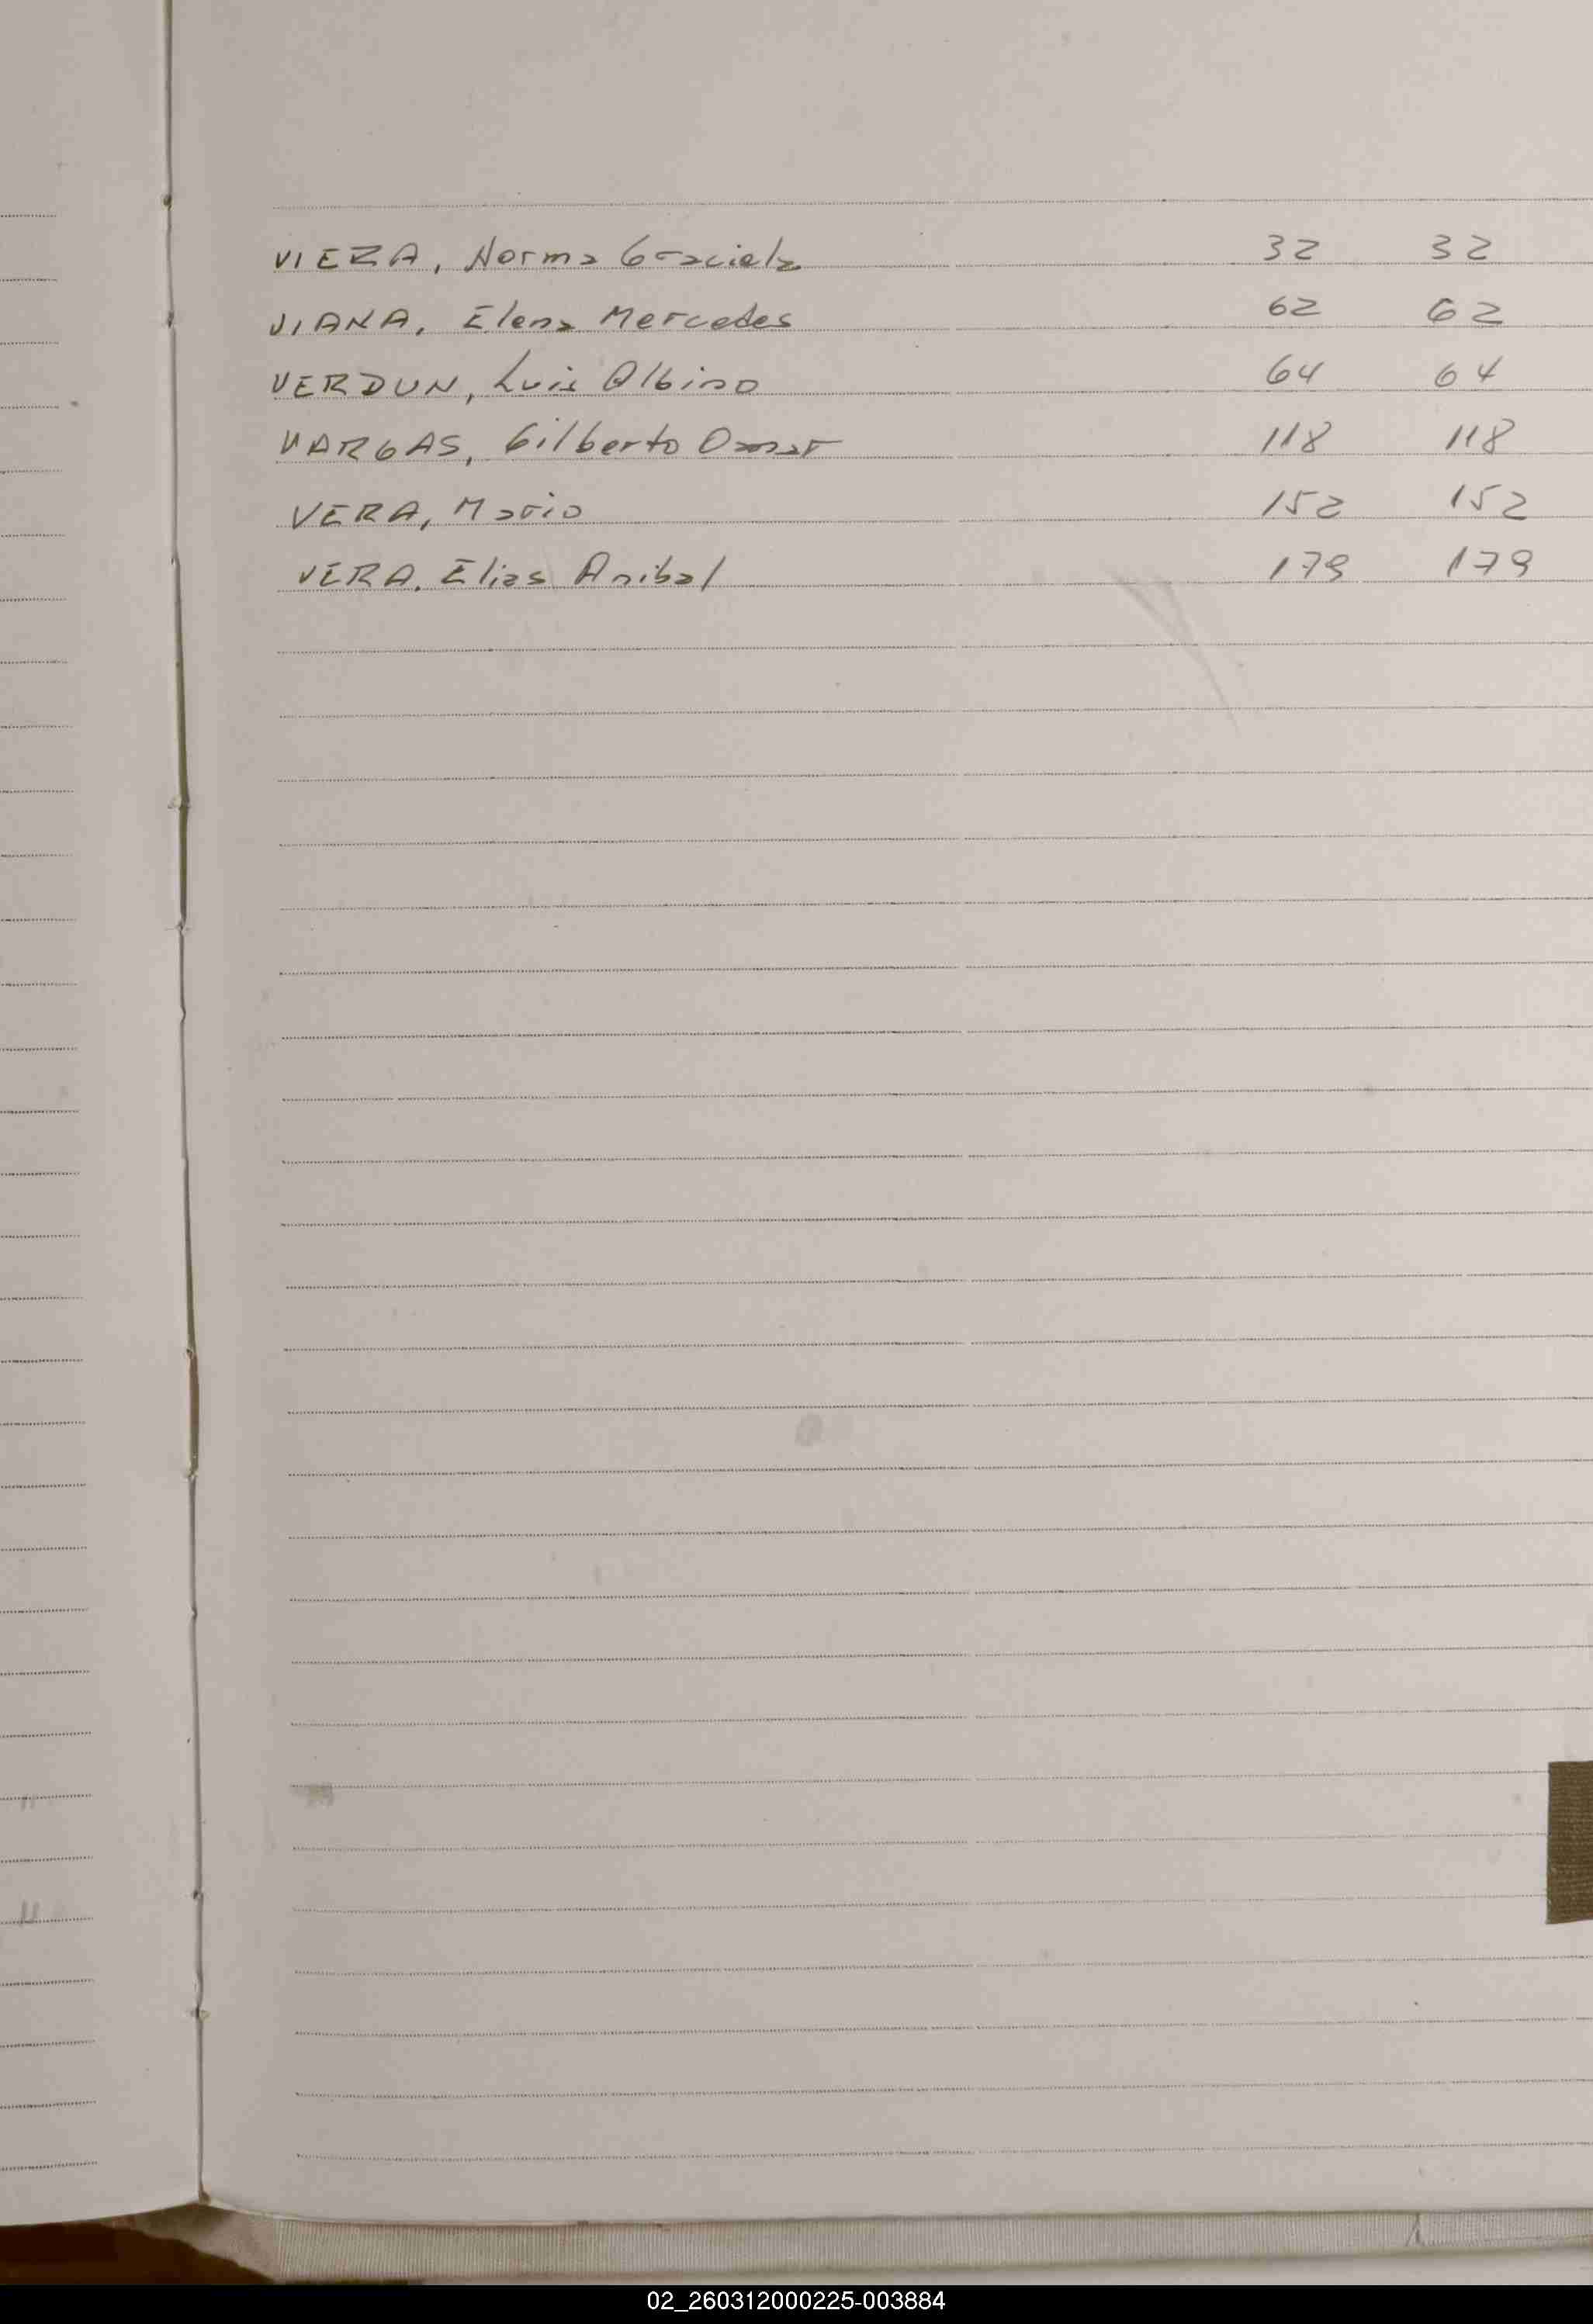 VIERA, Norma Graciela 32 32
VIANA, Elena Mercedes 62 62
VERDUN, Luis Albino 64 64
VARGAS, Gilberto Omar 118 118
VERA, Mario 152 152
VERA, Elias Anibal 179 179
02_260312000225-003884